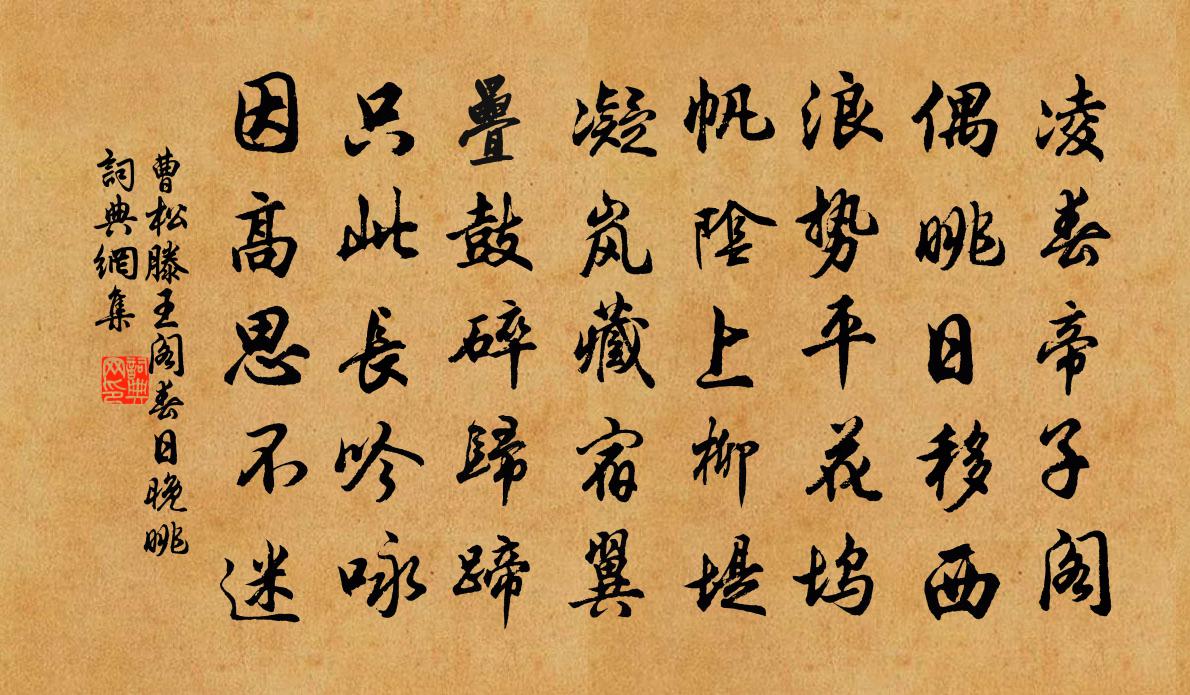 凌春帝子阁
偶眺日移西
浪势平花坞
帆阴上柳堤
凝岚藏宿翼
叠鼓碎歸蹄
只此長吟咏
因高思不迷
曹松滕王阁春日晚眺
詞典網集
詞典网印